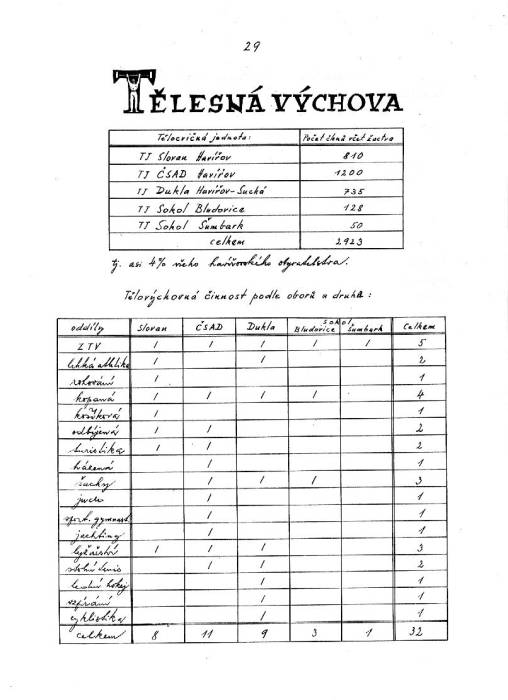 29
TĚLESNÁ VÝCHOVA
Tělocvičná jednota: Počet členů včet. žactva
TJ Slovan Havířov 810
TJ ČSAD Havířov 1200
TJ Dukla Havířov-Suchá 735
TJ Sokol Bludovice 128
TJ Sokol Šumbark 50
celkem 2923
tj. asi 4% všeho havířovského obyvatelstva.
Tělovýchovná činnost podle oborů a druhů:
oddíly Slovan ČSAD Dukla Sokol Bludovice Šumbark Celkem
ZTV / / / / / 5
lehká athletika / / 2
rohování / 1
kopaná / / / / 4
košíková / 1
odbíjená / / 2
turistika / / 2
házená / 1
šachy / / / 3
judo / 1
sport. gymnast. / 1
jachting / 1
lyžařství / / / 3
stolní tenis / / 2
lední hokej / 1
vzpírání / 1
cyklistika / 1
celkem 8 11 9 3 1 32